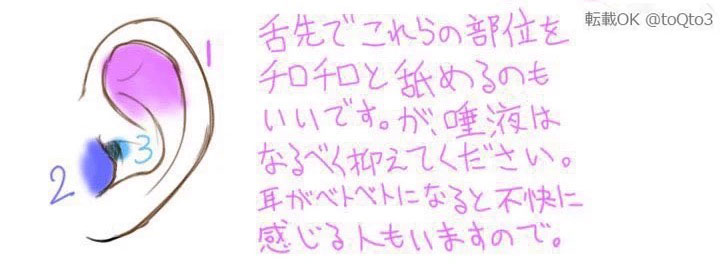 転載OK @toQto3
舌先でこれらの部位を
チロチロと舐めるのも
いいです。が、唾液は
なるべく抑えてください。
耳がベトベトになると不快に
感じる人もいますので。
1
2
3